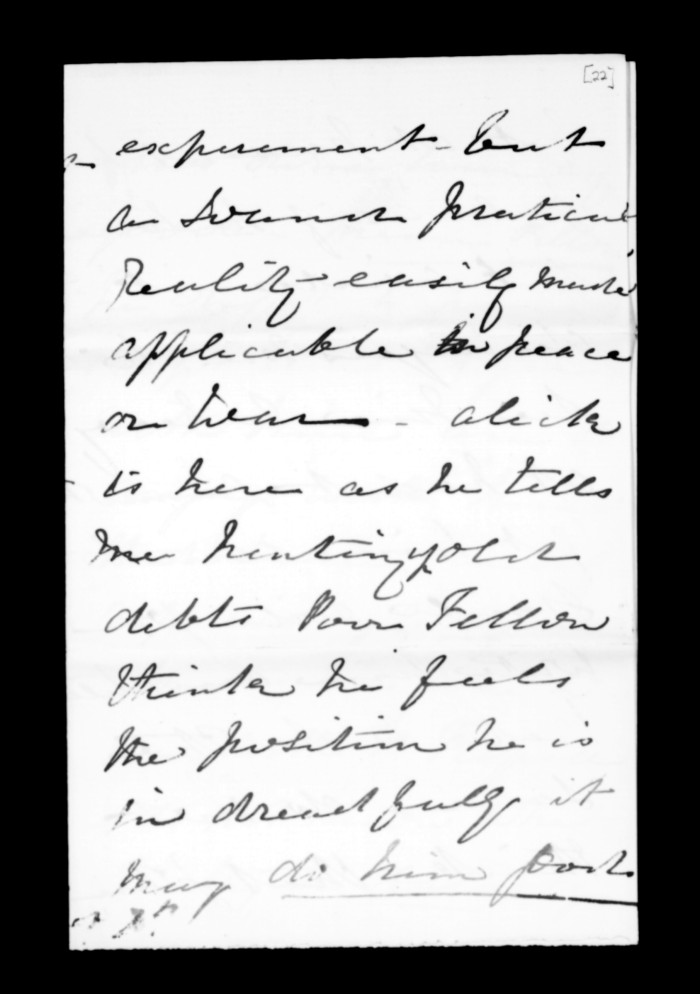 [22]
experiment - but
a sound practical
reality easily made
applicable in peace
or war - Alick
is here as he tells
me hunting up old
debts Poor Fellow
think he feels
the position he is
in dreadfully it
may do him good